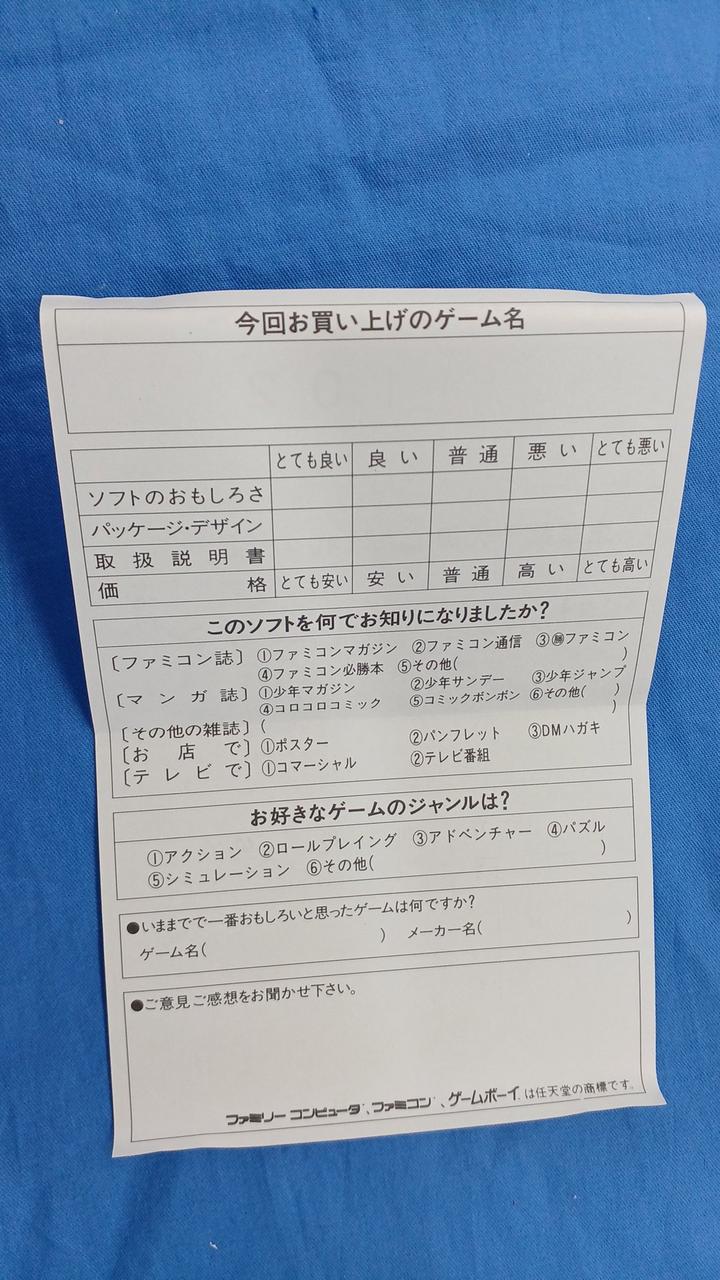 今回お買い上げのゲーム名
とても良い 良い 普通 悪い とても悪い
ソフトのおもしろさ
パッケージ・デザイン
取扱説明書
価格 とても安い 安い 普通 高い とても高い
このソフトを何でお知りになりましたか?
〔ファミコン誌〕 ①ファミコンマガジン ②ファミコン通信 ③㊝ファミコン
④ファミコン必勝本 ⑤その他( )
〔マンガ誌〕 ①少年マガジン ②少年サンデー ③少年ジャンプ
④コロコロコミック ⑤コミックボンボン ⑥その他( )
〔その他の雑誌〕( )
〔お店で〕 ①ポスター ②パンフレット ③DMハガキ
〔テレビで〕 ①コマーシャル ②テレビ番組
お好きなゲームのジャンルは?
①アクション ②ロールプレイング ③アドベンチャー ④パズル
⑤シミュレーション ⑥その他( )
●いままでで一番おもしろいと思ったゲームは何ですか?
ゲーム名( ) メーカー名( )
●ご意見ご感想をお聞かせ下さい。
ファミリーコンピュータ、ファミコン、ゲームボーイは任天堂の商標です。